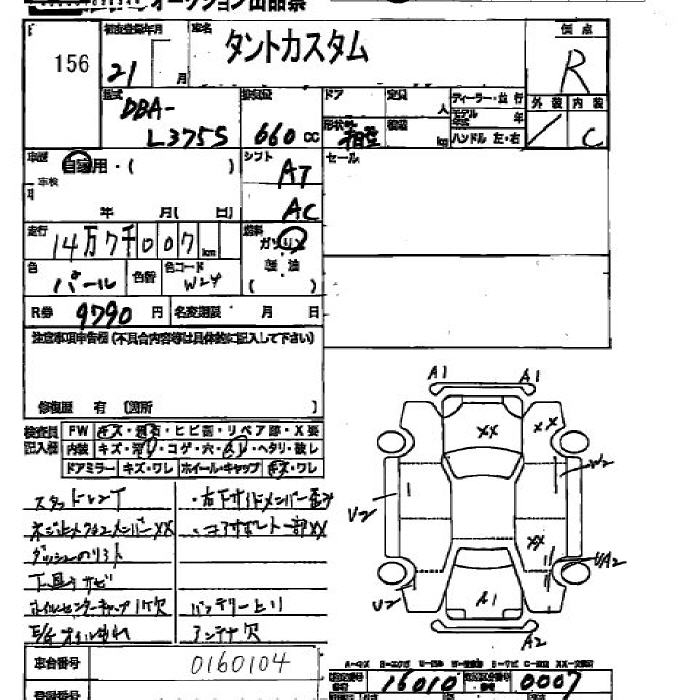 オークション出品票
156
初度登録年月
21
月
車名
タントカスタム
評点
R
外装 内装
C
型式
DBA-
L375S
排気量
660 cc
ドア
定員
人
ディーラー・並行
モデル
年
ハンドル 左・右
kg
車歴
自家用・( )
車検
年 月( 日)
シフト
AT
AC
セール
走行
14万7千007 km
燃料
ガソリン
軽油
( )
色
パール
色替
色コード
W24
R券
9790 円
名変期限 月 日
注意事項申告欄(不具合内容等は具体的に記入して下さい)
修復歴 有 [箇所 ]
検査員
記入欄
FW
キズ・飛石・ヒビ割・リペア跡・X要
内装
キズ・汚れ・コゲ・穴・スレ・ヘタリ・破レ
ドアミラー
キズ・ワレ
ホイール・キャップ
キズ・ワレ
・右下サイドメンバー歪み
・コアサポート一部XX
下廻りサビ
ホイルセンターキャップ1ケ欠
バッテリー上り
E/gオイルもれ
アンテナ欠
A1
A1
XX
XX
W2
U2
XX
UA2
U2
A1
A2
車台番号
0160104
登録番号
16010
0007